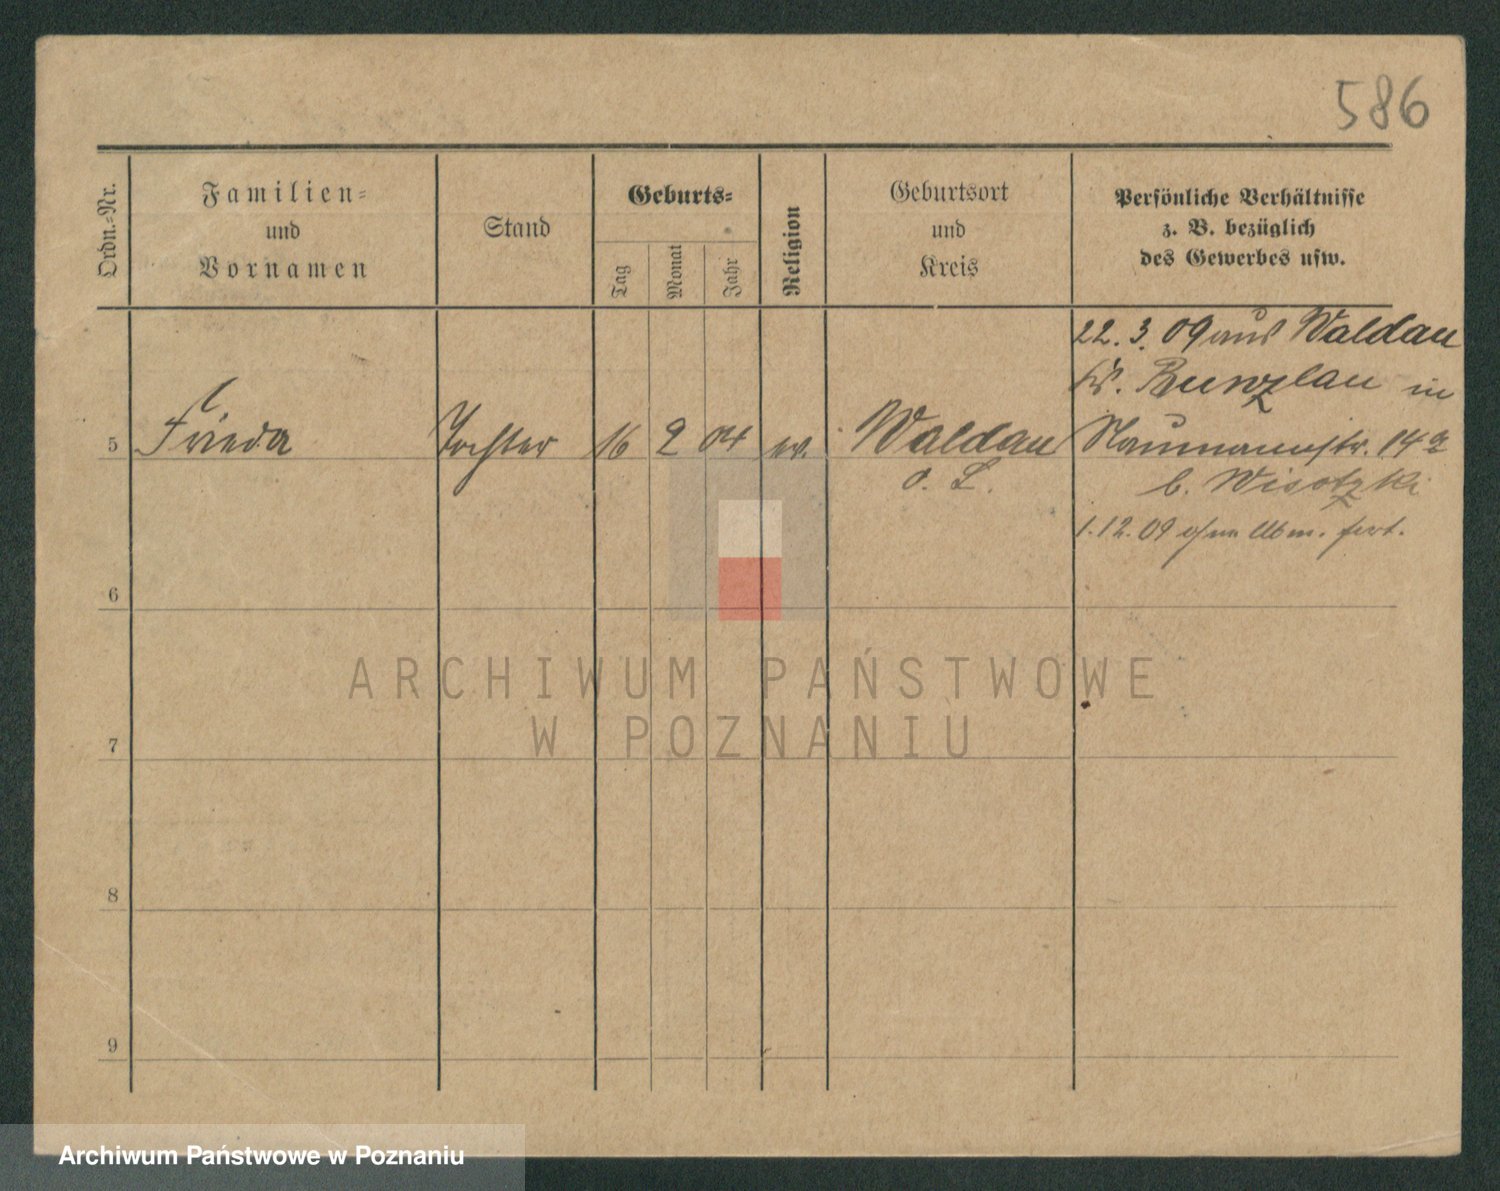 586
Ordn.-Nr.
Familien-
und
Vornamen
Stand
Geburts-
Tag
Monat
Jahr
Religion
Geburtsort
und
Kreis
Persönliche Verhältnisse
z. B. bezüglich
des Gewerbes usw.
22. 3. 09 aus Waldau
Kr. Bunzlau in
5 Frieda Tochter 16 2 04 ev. Waldau Naumannstr. 14a
o. L. b. Wisotzki
1.12.09 ohne Abm. fort.
6
ARCHIWUM PAŃSTWOWE
W POZNANIU
7
8
9
Archiwum Państwowe w Poznaniu